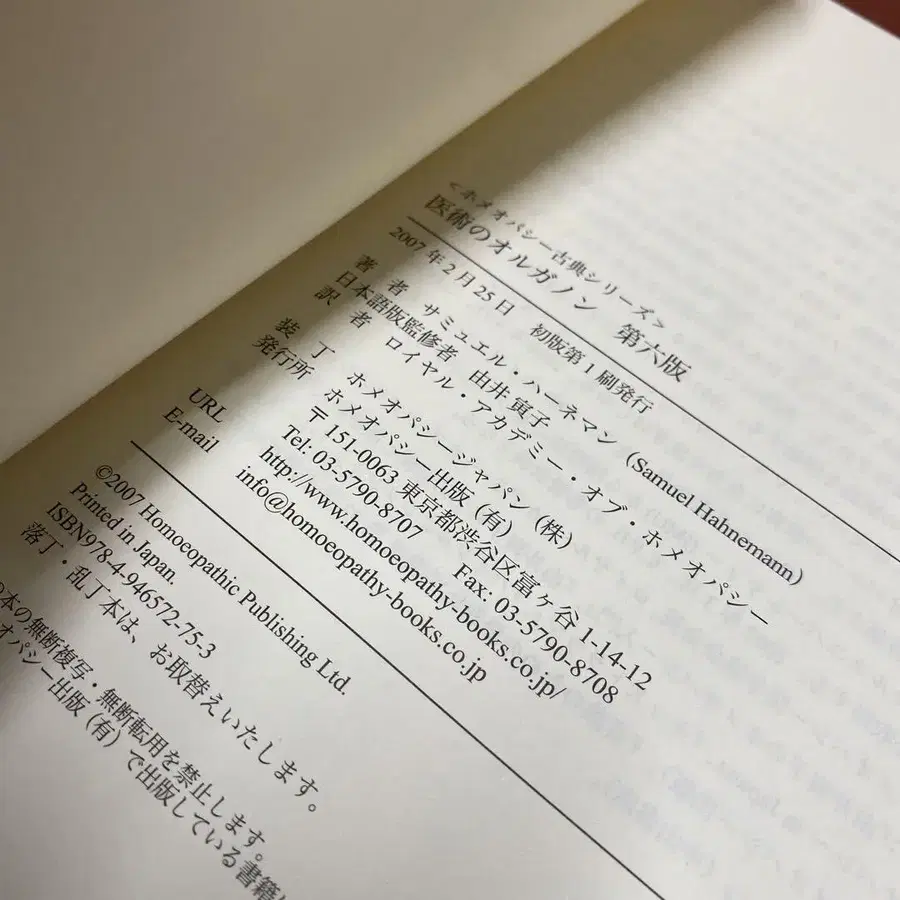 <ホメオパシー古典シリーズ>
医術のオルガノン 第六版
2007年2月25日 初版第1刷発行
著者 サミュエル・ハーネマン (Samuel Hahnemann)
日本語版監修者 由井寅子
訳者 ロイヤル・アカデミー・オブ・ホメオパシー
装丁 ホメオパシージャパン(株)
発行所 ホメオパシー出版(有)
〒151-0063 東京都渋谷区富ヶ谷1-14-12
Tel: 03-5790-8707 Fax: 03-5790-8708
URL http://www.homoeopathy-books.co.jp/
E-mail info@homoeopathy-books.co.jp
©2007 Homoeopathic Publishing Ltd.
Printed in Japan.
ISBN978-4-946572-75-3
落丁・乱丁本は、お取替えいたします。
の本の無断複写・無断転用を禁止します。
オパシー出版(有)で出版している書籍